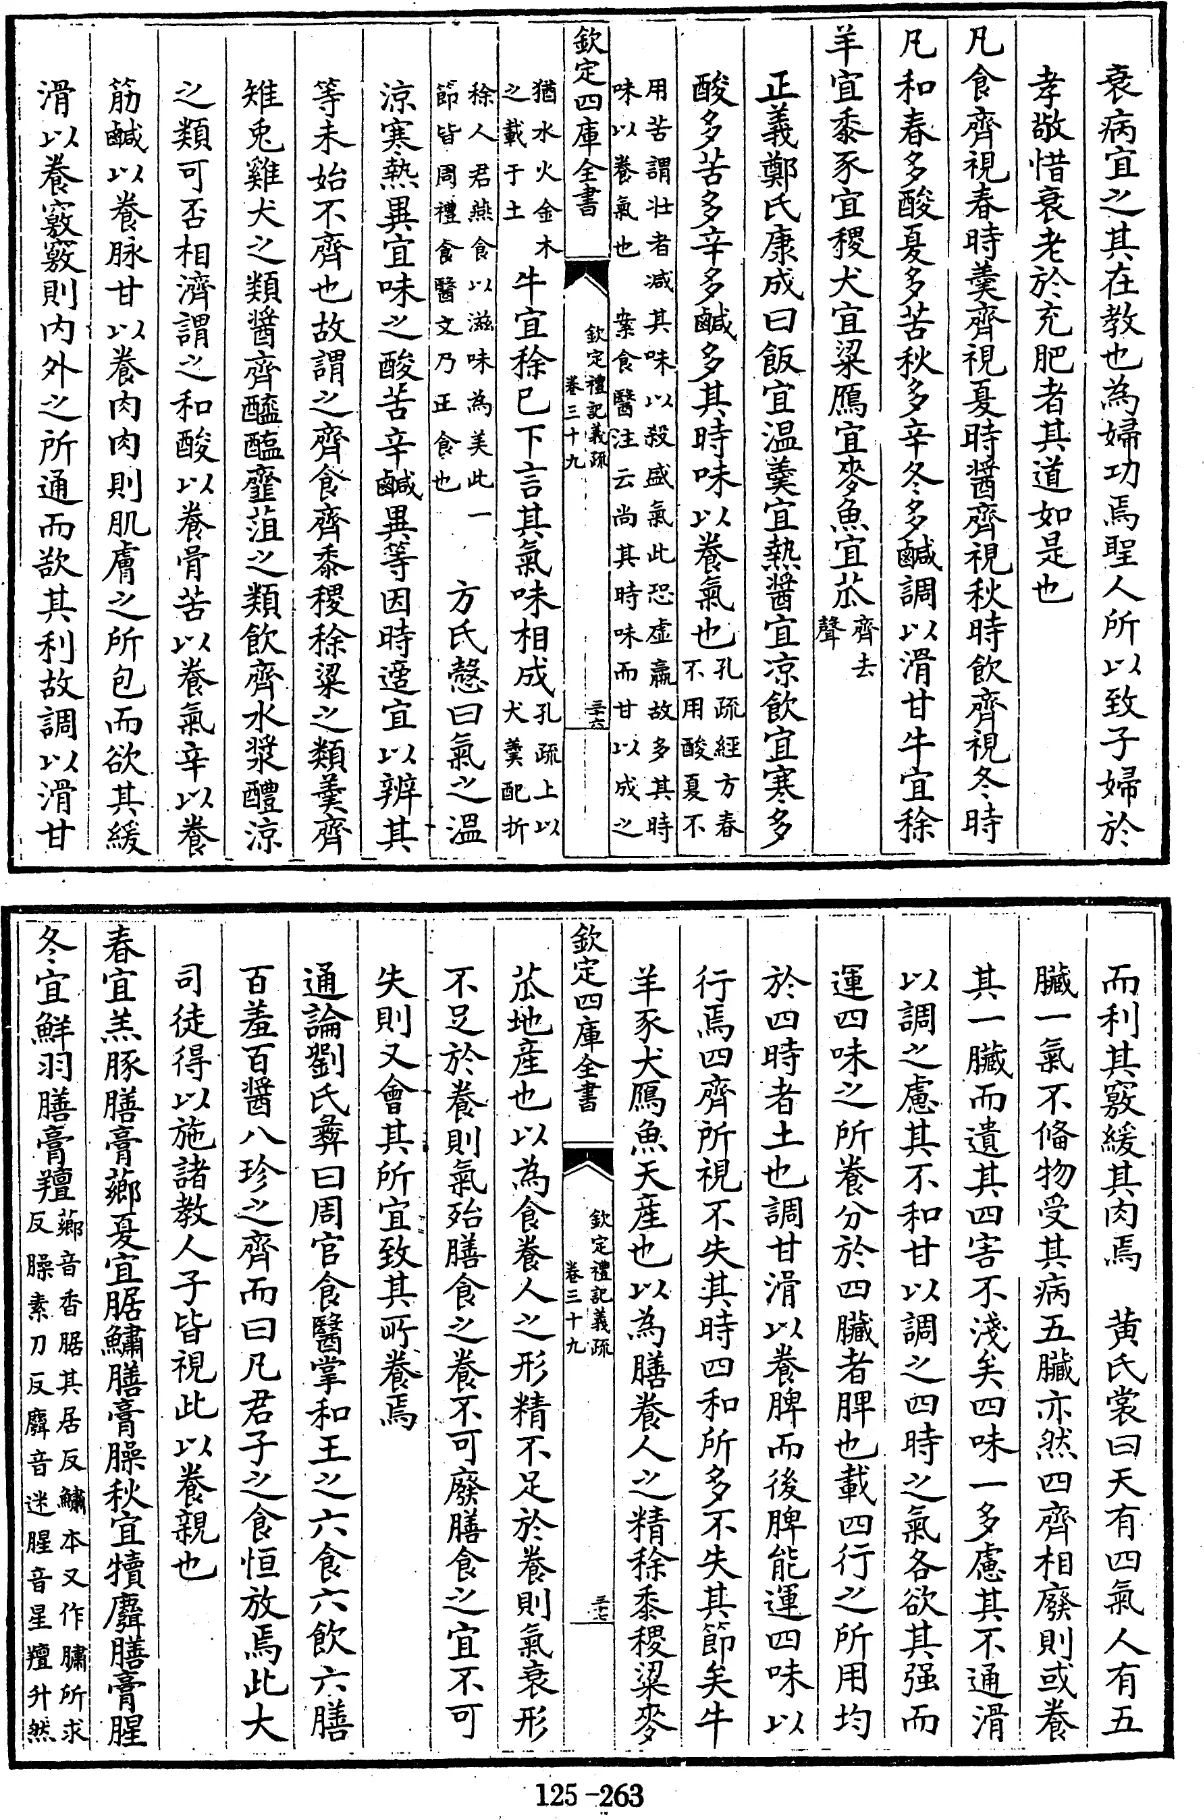 衰病宜之其在教也為婦功焉聖人所以致子婦於
孝敬惜衰老於充肥者其道如是也
凡食齊視春時羹齊視夏時醬齊視秋時飲齊視冬時
凡和春多酸夏多苦秋多辛冬多鹹調以滑甘牛宜稌
羊宜黍豕宜稷犬宜粱鴈宜麥魚宜苽齊去
聲
正義鄭氏康成曰飯宜温羹宜熱醬宜凉飲宜寒多
酸多苦多辛多鹹多其時味以養氣也孔疏經方春
不用酸夏不
用苦謂壮者減其味以殺盛氣此恐虚羸故多其時
味以養氣也 案食醫注云尚其時味而甘以成之
欽定四庫全書
欽定禮記義疏
卷三十九
三十六
猶水火金木
之載于土
牛宜稌已下言其氣味相成孔疏上以
犬羹配折
稌人君燕食以滋味為美此一
節皆周禮食醫文乃正食也
方氏慤曰氣之温
涼寒熱異宜味之酸苦辛鹹異等因時適宜以辨其
等未始不齊也故謂之齊食齊黍稷稌粱之類羹齊
雉兎雞犬之類醬齊醯醢虀菹之類飲齊水漿醴涼
之類可否相濟謂之和酸以養骨苦以養氣辛以養
筋鹹以養脉甘以養肉肉則肌膚之所包而欲其緩
滑以養竅竅則内外之所通而欲其利故調以滑甘
而利其竅緩其肉焉 黄氏裳曰天有四氣人有五
臟一氣不脩物受其病五臟亦然四齊相廢則或養
其一臟而遺其四害不淺矣四味一多慮其不通滑
以調之慮其不和甘以調之四時之氣各欲其强而
運四味之所養分於四臟者脾也載四行之所用均
於四時者土也調甘滑以養脾而後脾能運四味以
行焉四齊所視不失其時四和所多不失其節矣牛
羊豕犬鴈魚天産也以為膳養人之精稌黍稷粱麥
欽定四庫全書
欽定禮記義疏
卷三十九
三十七
苽地産也以為食養人之形精不足於養則氣衰形
不足於養則氣殆膳食之養不可廢膳食之宜不可
失則又會其所宜致其所養焉
通論劉氏彝曰周官食醫掌和王之六食六飲六膳
百羞百醬八珍之齊而曰凡君子之食恒放焉此大
司徒得以施諸教人子皆視此以養親也
春宜羔豚膳膏薌夏宜腒鱐膳膏臊秋宜犢麛膳膏腥
冬宜鮮羽膳膏羶薌音香腒其居反鱐本又作驌所求
反臊素刀反麛音迷腥音星羶升然
125-263